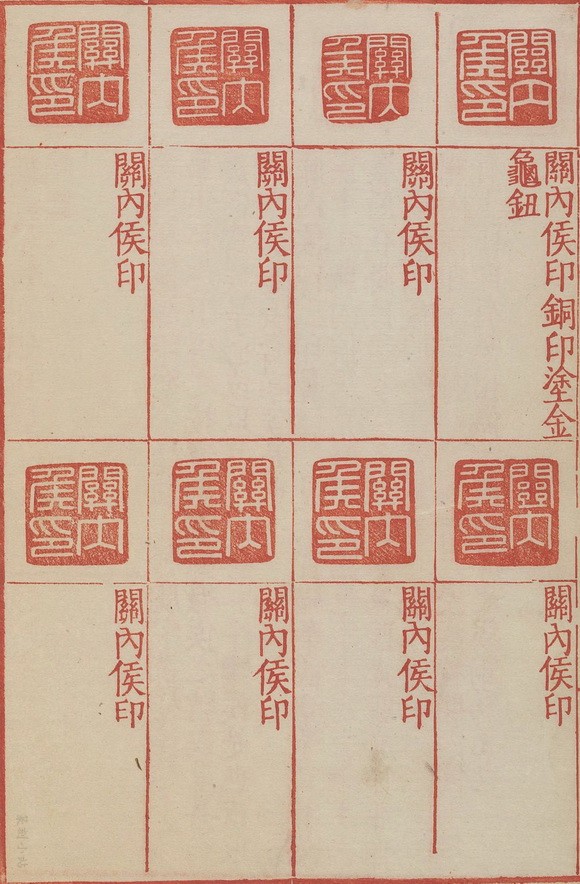 關內侯印
關內侯印銅印塗金
龜鈕
關內侯印
關內侯印
關內侯印
關內侯印
關內侯印
關內侯印
關內侯印
關內侯印
關內侯印
關內侯印
關內侯印
關內侯印
關內侯印
關內侯印